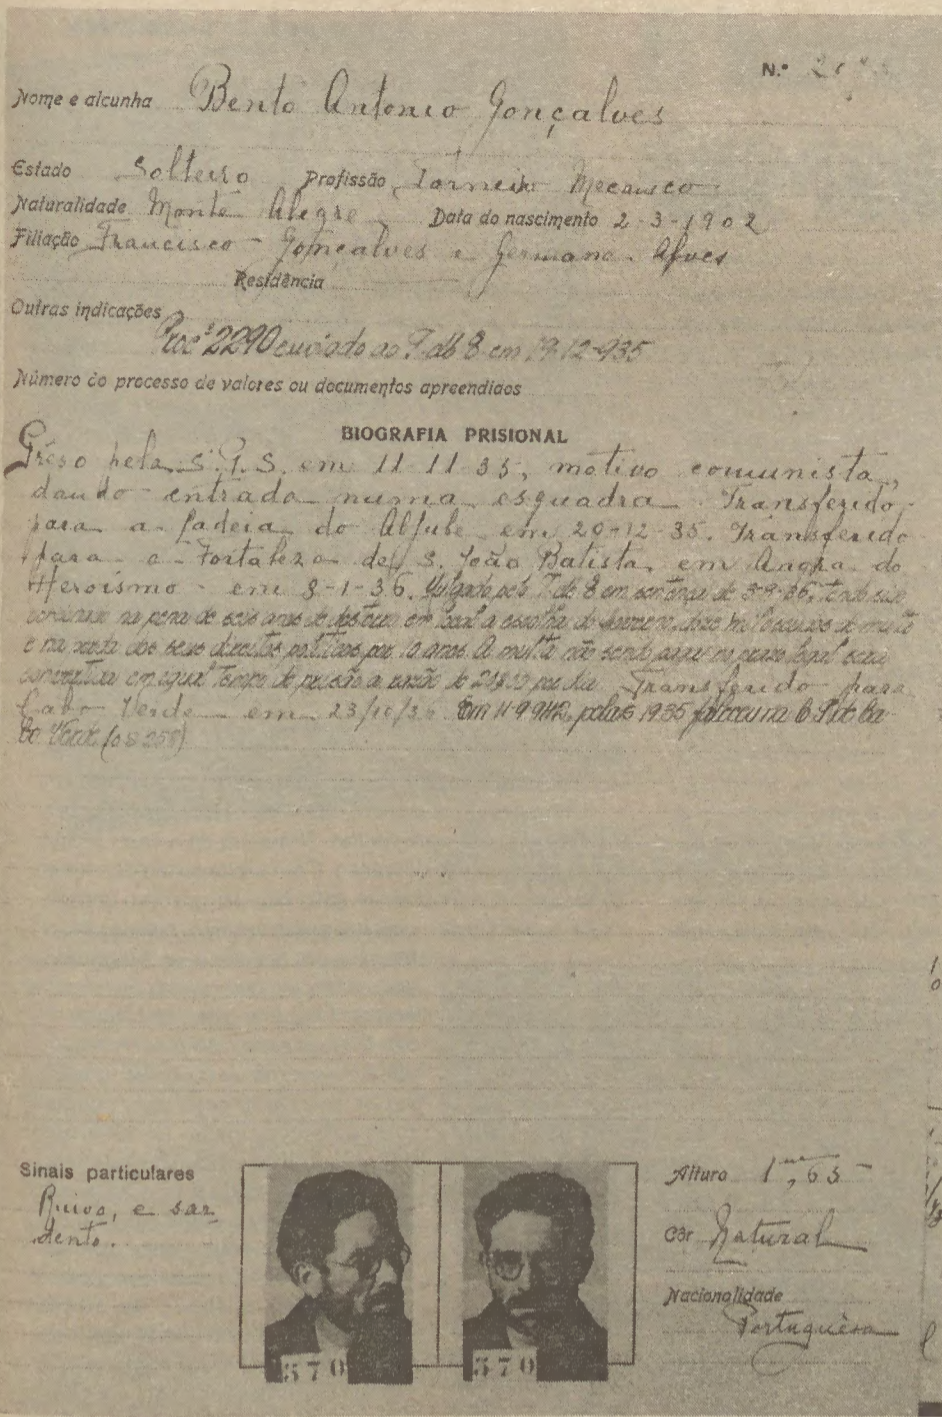 N.º
Nome e alcunha Bento Antonio Gonçalves
Estado Solteiro Profissão Torneiro Mecanico
Naturalidade Monte Alegre Data do nascimento 2-3-1902
Filiação Francisco Gonçalves e Germana Alves
Residência
Outras indicações
Procº 2290 enviado ao T. M. E. em 19-12-935
Número do processo de valores ou documentos apreendidos
BIOGRAFIA PRISIONAL
Prêso pela S. P. S. em 11 11 35, motivo comunista,
dando entrada numa esquadra. Transferido
para a Cadeia do Aljube em 20-12-35. Transferido
para a Fortaleza de S. João Batista, em Angra do
Heroismo em 8-1-36. Julgado pelo T. M. E. em sentença de tendo sido
na pena de seis anos de destêrro em local á escolha do Governo, doze mil escudos de multa
e na perda dos seus direitos politicos por 10 anos. A multa não sendo paga no prazo legal será
em egual tempo de prisão a razão de por dia. Transferido para
Cabo Verde em 23/10/36 Em 11-9-942, pelas 19.35 faleceu na C. P. de Ca-
bo Verde (o s 258)
Sinais particulares
Ruivo, e sar
dento.
Altura 1,65
Côr Natural
Nacionalidade
Portuguêsa
570
570